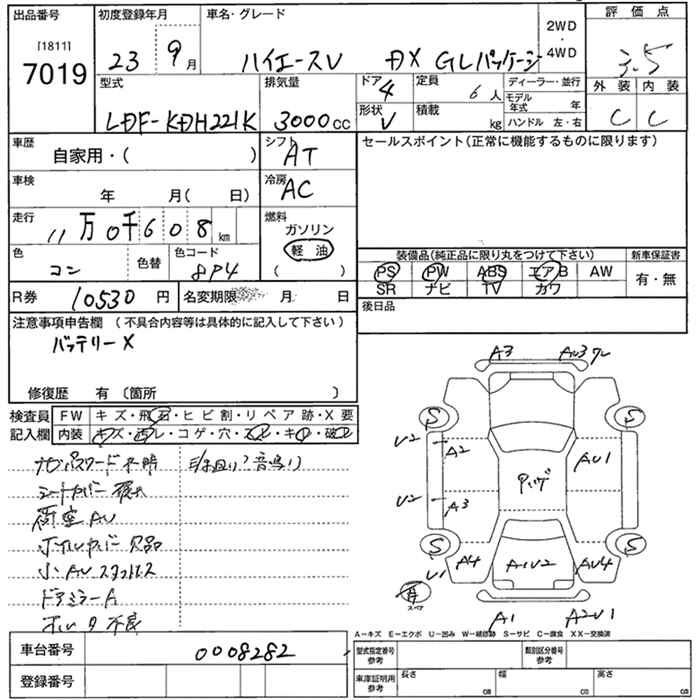 出品番号 初度登録年月 車名・グレード 2WD 評価点
[1811] 7019 23 9月 ハイエースV DX GLパッケージ ・ 4WD 3.5
型式 排気量 ドア 4 定員 6人 ディーラー・並行 外装 内装
LDF-KDH221K 3000cc 形状 V 積載 kg モデル年式 年 C C
ハンドル 左・右
車歴 自家用・( ) シフト AT セールスポイント(正常に機能するものに限ります)
車検 年 月( 日) 冷房 AC
走行 11万0千608km 燃料 ガソリン
軽油
( )
色 コン 色替 色コード 8P4 装備品(純正品に限り丸をつけて下さい) 新車保証書
PS PW ABS エアB AW 有・無
SR ナビ TV カワ
R券 10530円 名変期限 月 日 後日品
注意事項申告欄 (不具合内容等は具体的に記入して下さい)
バッテリーX
修復歴 有 〔箇所 〕
検査員 FW キズ・飛石・ヒビ割・リペア跡・X要
記入欄 内装 キズ・汚レ・コゲ・穴・スレ・キレ・破レ
ナビパスワード不明
シートカバー
AU
ホイルカバー欠品
小AUスタットレス
ドアミラーA
不良
A3
S S
U2 A2 AU1
U2 A3
S S
U1 A4 A1U2 AU4
スペア
A1 A2U1
A－キズ E－エクボ U－凹み W－補修跡 S－サビ C－腐食 XX－交換済
車台番号 0008282 型式指定番号 参考 類別区分番号 参考
登録番号 車庫証明用 参考 長さ cm 幅 cm 高さ cm